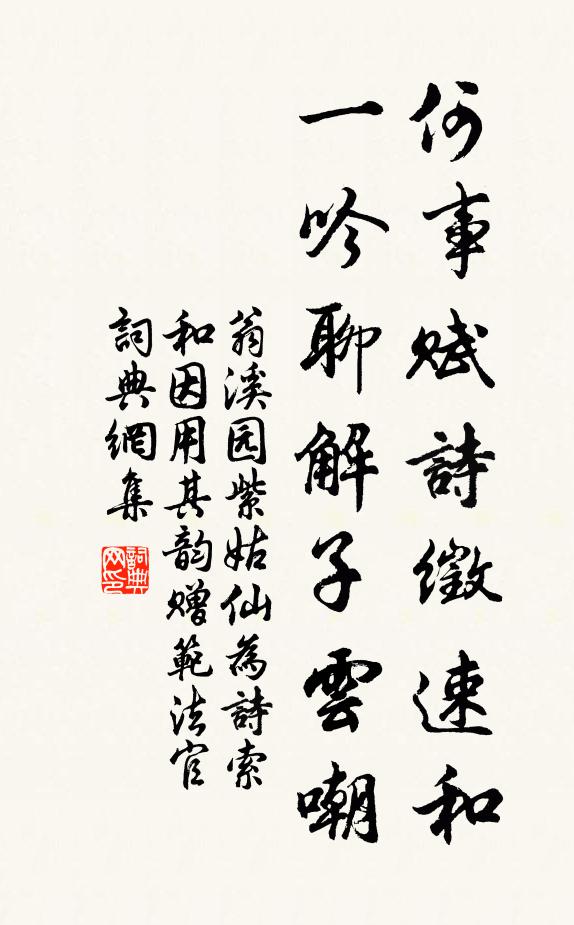 何事賦詩徵速和
一吟聊解子雲嘲
翁溪园紫姑仙為詩索
和因用其韵赠範法官
詞典網集
詞典
网印